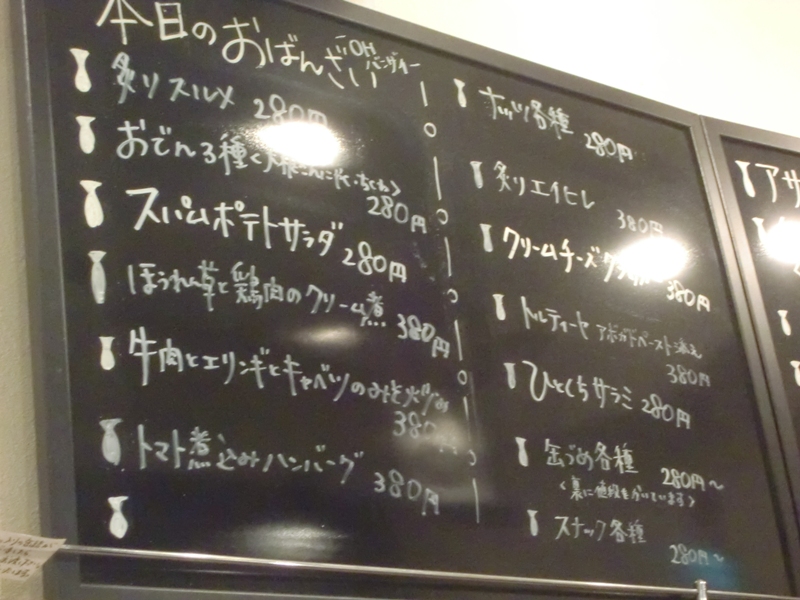 本日のおばんざい
炙りスルメ 280円
おでん3種
280円
スパムポテトサラダ 280円
ほうれん草と鶏肉のクリーム煮
380円
牛肉とエリンギとキャベツのみそ
380
トマト煮込みハンバーグ
380円
ナッツ各種 280円
炙りエイヒレ
380円
クリームチーズ
380円
トルティーヤ アボガドペースト添え
380円
ひとくちサラミ 280円
缶づめ各種 280円〜
〈裏に値段をかいています〉
スナック各種
280円〜
アサ